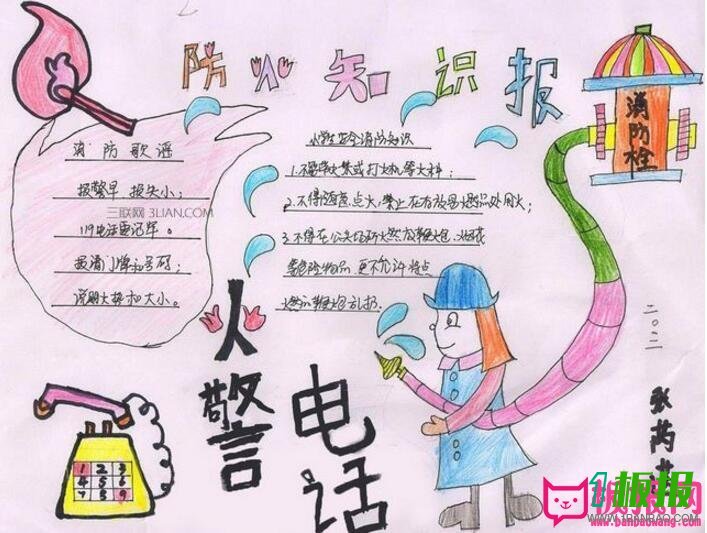 防火知识报
消防歌谣
报警早 损失小；
三联网 3LIAN.COM
119电话要记牢。
报清门牌和号码；
说明火势和大小。
小学生安全消防知识
1.不带火柴或打火机等火种；
2.不得随意点火，禁止在存放易燃品处用火；
3.不得在公共场所燃放鞭炮、
等危险物品 更不允许将点
燃的鞭炮乱扔.
消防栓
火警电话
1 2 3
4 5 6
7 8 9
二〇一一
张芮
板报
板报网
www.banbaowang.com